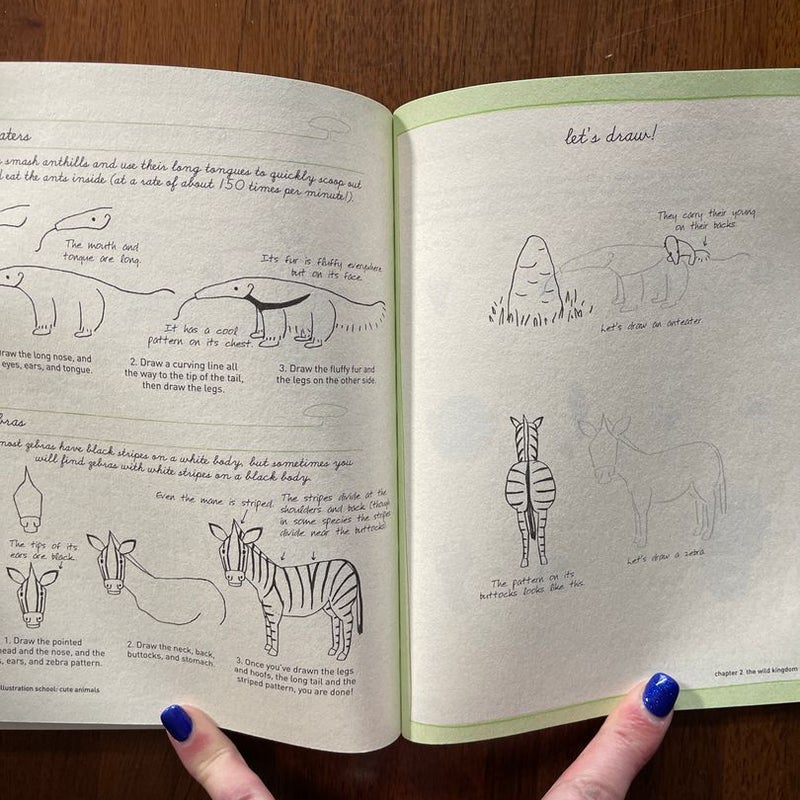 aters
smash anthills and use their long tongues to quickly scoop out
eat the ants inside (at a rate of about 150 times per minute!).
The mouth and
tongue are long.
Its fur is fluffy everywhere
but on its face.
It has a cool
pattern on its chest.
raw the long nose, and
eyes, ears, and tongue.
2. Draw a curving line all
the way to the tip of the tail,
then draw the legs.
3. Draw the fluffy fur and
the legs on the other side.
bras
most zebras have black stripes on a white body, but sometimes you
will find zebras with white stripes on a black body.
Even the mane is striped.
The stripes divide at the
shoulders and back (though
in some species the stripes
divide near the buttocks).
The tips of its
ears are black.
1. Draw the pointed
ead and the nose, and the
s, ears, and zebra pattern.
2. Draw the neck, back,
buttocks, and stomach.
3. Once you've drawn the legs
and hoofs, the long tail and the
striped pattern, you are done!
llustration school: cute animals
let's draw!
They carry their young
on their backs.
Let's draw an anteater.
The pattern on its
buttocks looks like this.
Let's draw a zebra.
chapter 2 the wild kingdom